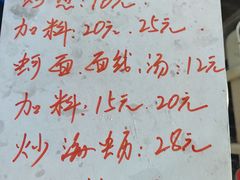 加料:20元、25元
蚵面、面线、汤:12元
加料:15元、20元
炒海蛎:28元